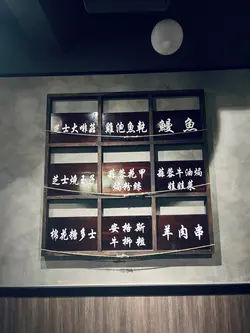 芝士大啡菇
雞泡魚乾
鰻魚
芝士燒玉子
蒜蓉花甲
焗粉絲
蒜蓉牛油焗
娃娃菜
棉花糖多士
安格斯
牛柳粗
羊肉串